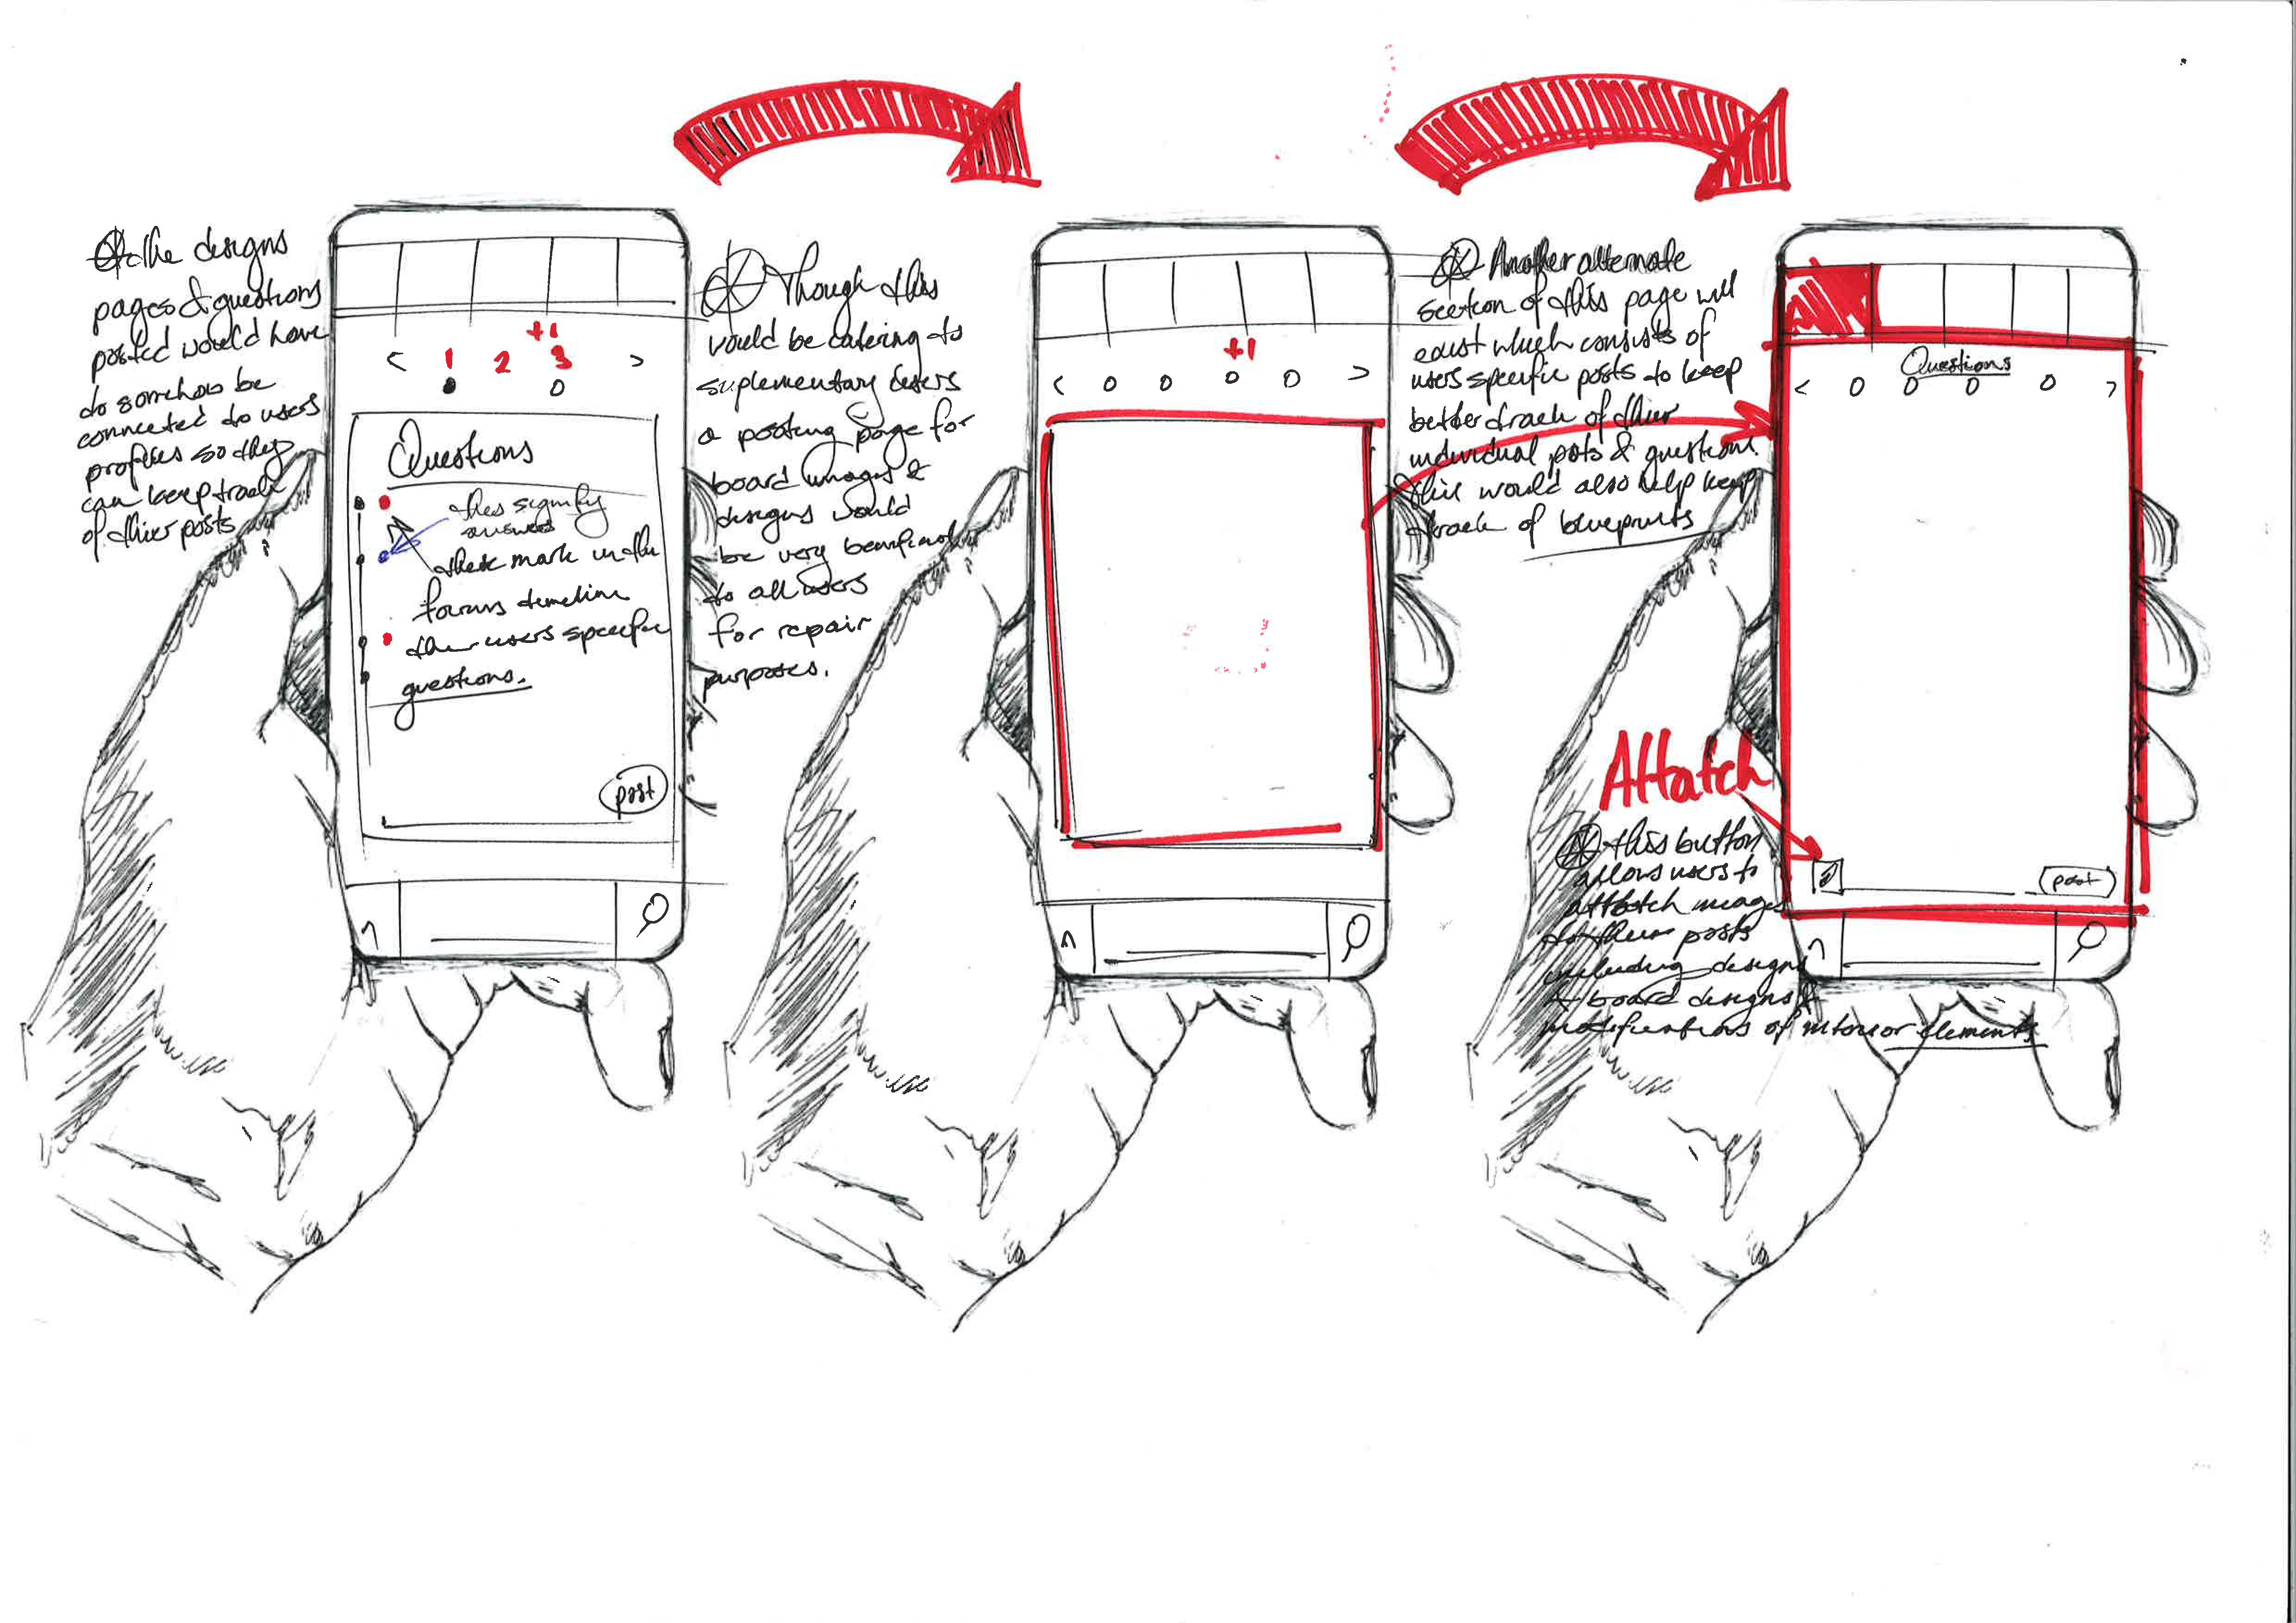 the designs
pages & questions
posted would have
to somehow be
connected to users
profiles so they
can keep track
of thier posts
+1
< 1 2 3 >
Questions
this signify
answers
these mark in the
forums timeline
the users specific
questions.
post
Though this
would be catering to
suplementary users
a posting page for
board images &
designs would
be very beneficial
to all users
for repair
purposes.
+1
< 0 0 0 0 >
Another alternate
section of this page will
exist which consists of
users specific posts to keep
better track of thier
individual posts & questions
this would also help keep
track of blueprints
Questions
< 0 0 0 0 >
Attatch
this button
allows users to
attatch images
to their posts
including designs
& board designs &
modifications of interior elements
post